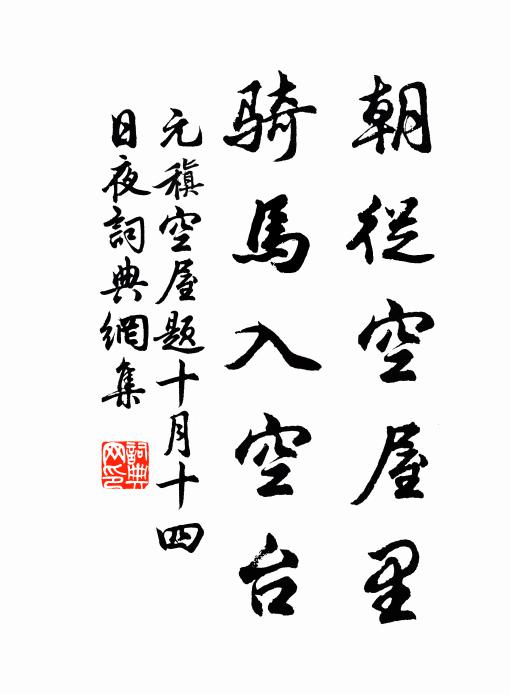 朝從空屋里
騎馬入空台
元稹空屋題十月十四
日夜詞典網集
詞典
网印